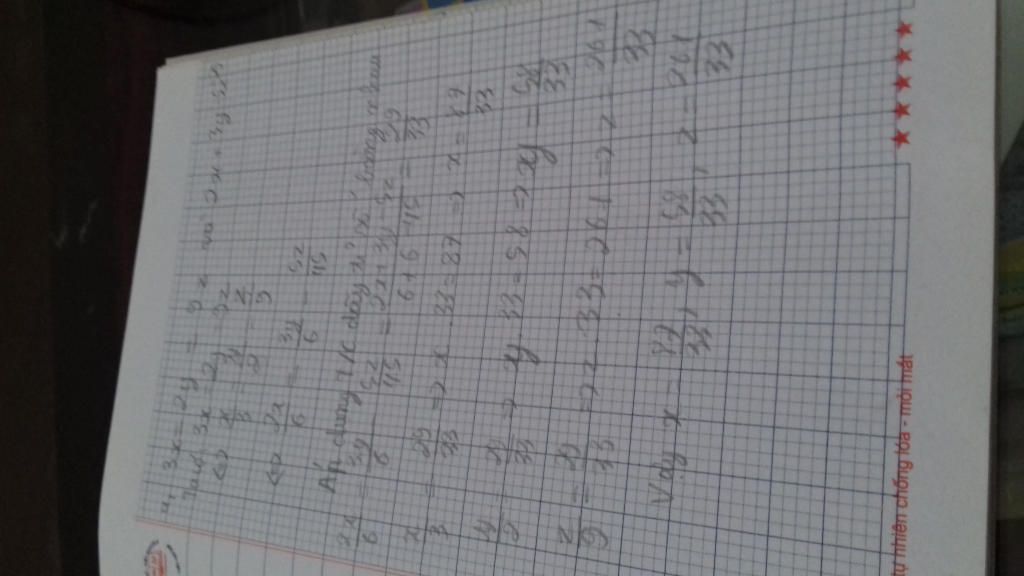 3x = 2y = 9z và 2x + 3y
3x = 2y = 9z
<=> x/3 = y/2 = z/9
<=> 2x/6 = 3y/6 = 5z/45
Áp dụng t/c dãy tỉ số bằng nhau
2x/6 = 3y/6 = 5z/45 = 2x + 3y - 5z / 6 + 6 - 45 = 29/33
x/3 = 29/33 => x . 33 = 87 => x = 87/33
y/2 = 29/33 => y . 33 = 58 => y = 58/33
z/9 = 29/33 => z . 33 = 261 => z = 261/33
Vậy x = 87/33, y = 58/33, z = 261/33
tự nhiên chống lóa - mỏi mắt ★★★★★